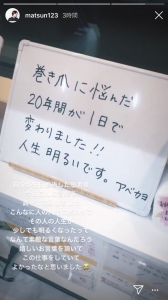 matsun123 3時間
巻き爪に悩んだ
20年間が1日で
変わりました!!
人生明るいです。
アベカヨ
こんなに人の
その人の人生
少しでも明るくなったって
なんて素敵な言葉なんだろう
嬉しいお言葉を頂いて
この仕事をしていて
よかったなと思いました